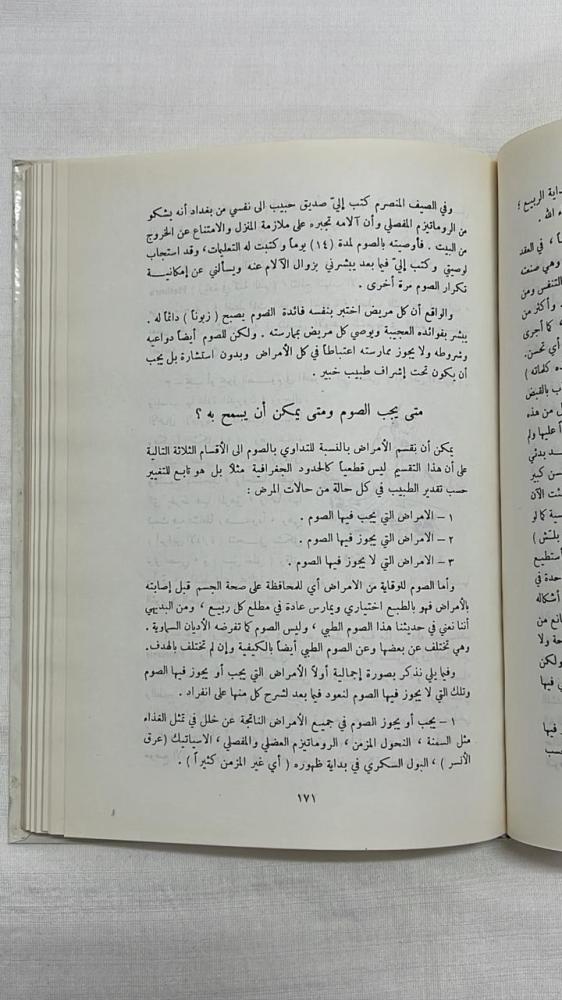 وفي الصيف المنصرم كتب إليّ صديق حبيب الى نفسي من بغداد أنه يشكو
من الروماتيزم المفصلي وأن آلامه تجبره على ملازمة المنزل والامتناع عن الخروج
من البيت . فأوصيته بالصوم لمدة (١٤) يوماً وكتبت له التعليمات ، وقد استجاب
لوصيتي وكتب إليّ فيما بعد يبشرني بزوال الآلام عنه ويسألني عن إمكانيـة
تكرار الصوم مرة أخرى .
والواقع أن كل مريض اختبر بنفسه فائدة الصوم يصبح ( زبوناً ) دائماً له .
يبشر بفوائده العجيبة ويوصي كل مريض بممارسته . ولكن للصوم أيضاً دواعيه
وشروطه ولا يجوز ممارسته اعتباطاً في كل الأمراض وبدون استشارة بل يجب
أن يكون تحت إشراف طبيب خبير .
متى يجب الصوم ومتى يمكن أن يسمح به ؟
يمكن أن نقسم الأمراض بالنسبة للتداوي بالصوم الى الأقسام الثلاثة التالية
على أن هذا التقسيم ليس قطعياً كالحدود الجغرافية مثلاً بل هو تابع للتغيير
حسب تقدير الطبيب في كل حالة من حالات المرض :
١ – الامراض التي يجب فيها الصوم .
٢ – الامراض التي يجوز فيها الصوم .
٣ – الامراض التي لا يجوز فيها الصوم .
وأما الصوم للوقاية من الامراض أي للمحافظة على صحة الجسم قبل إصابته
بالأمراض فهو بالطبع اختياري ويمارس عادة في مطلع كل ربيع ، ومن البديهي
أننا نعني في حديثنا هذا الصوم الطبي ، وليس الصوم كما تفرضه الأديان السماوية .
وهي تختلف عن بعضها وعن الصوم الطبي أيضاً بالكيفية وإن لم تختلف بالهدف.
وفيما يلي نذكر بصورة إجمالية أولاً الأمراض التي يجب أو يجوز فيها الصوم
وتلك التي لا يجوز فيها الصوم لنعود فيما بعد لشرح كل منها على انفراد .
١ – يجب أو يجوز الصوم في جميع الأمراض الناتجة عن خلل في تمثل الغذاء
مثل السمنة ، النحول المزمن ، الروماتيزم العضلي والمفصلي ، الاسياتيك (عرق
الأنسر ) ، البول السكري في بداية ظهوره ( أي غير المزمن كثيراً ) .
١٧١
داية الربيع ؟
ء الله .
، في العقد
وهي صنعت
التنفس ومن
وأكثر من
، كما أجرى
أي تحسن.
ده كلماته )
ب بالقبض
ل من هذه
أ عليها ولم
د بدئي
سن كبير
ئت الآن
سية كما لو
بلتش )
أستطيع
حدة في
أشكاله
انع من
حة ولا
ولكن
ي فيها
ز فيها
حسب